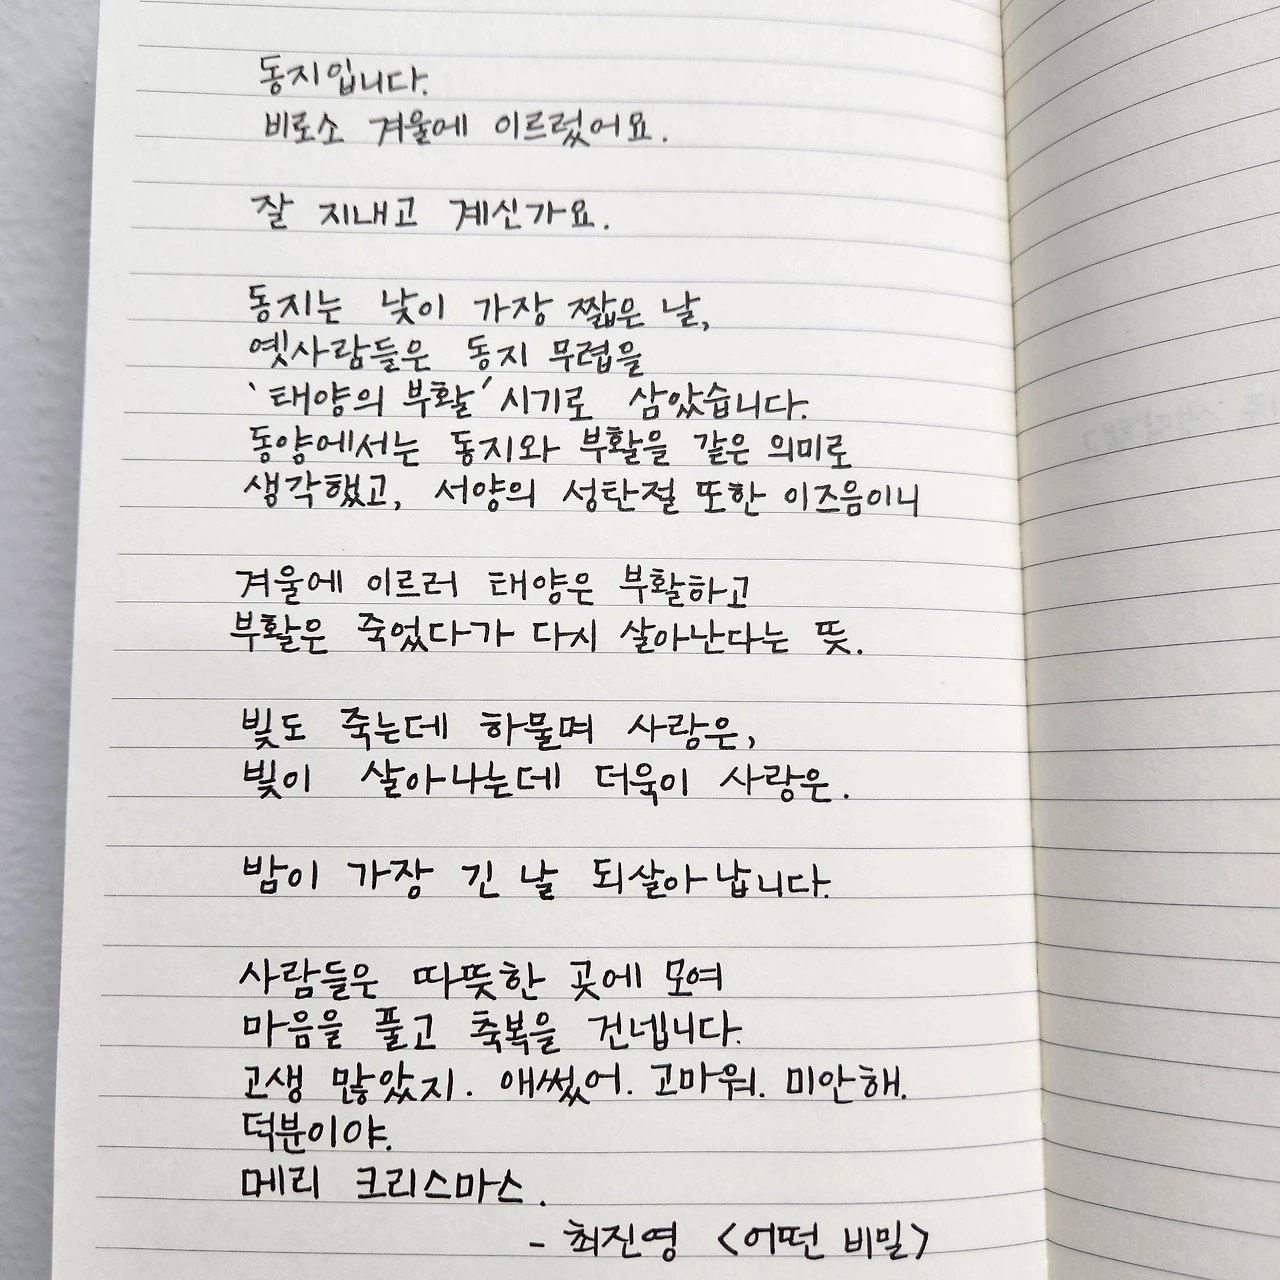 동지입니다.
비로소 겨울에 이르렀어요.
잘 지내고 계신가요.
동지는 낮이 가장 짧은 날,
옛사람들은 동지 무렵을
'태양의 부활' 시기로 삼았습니다.
동양에서는 동지와 부활을 같은 의미로
생각했고, 서양의 성탄절 또한 이즈음이니
겨울에 이르러 태양은 부활하고
부활은 죽었다가 다시 살아난다는 뜻.
빛도 죽는데 하물며 사랑은,
빛이 살아나는데 더욱이 사랑은.
밤이 가장 긴 날 되살아납니다.
사람들은 따뜻한 곳에 모여
마음을 풀고 축복을 건넵니다.
고생 많았지. 애썼어. 고마워. 미안해.
덕분이야.
메리 크리스마스.
- 최진영 <어떤 비밀>